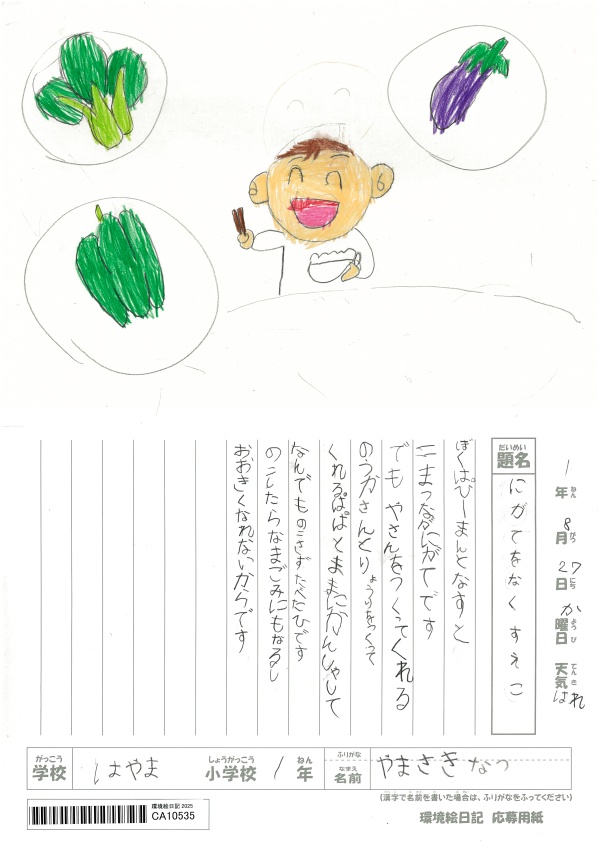 1年 8月 27日 か曜日 天気 はれ
ねん がつ にち ようび てんき
だいめい
題名
にがてをなくすえこ
ぼくはぴーまんとなすと
こまつながにがてです
でもやさんをつくってくれる
のうかさんとりょうりをつくって
くれるぱぱとままにかんしゃして
なんでものこさずたべたひです
のこしたらなまごみにもなるし
おおきくなれないからです
がっこう
学校
はやま
しょうがっこう
小学校
1
ねん
年
ふりがな
なまえ
名前
やまさき なつ
(漢字で名前を書いた場合は、ふりがなをふってください)
環境絵日記 2025
CA10535
環境絵日記 応募用紙